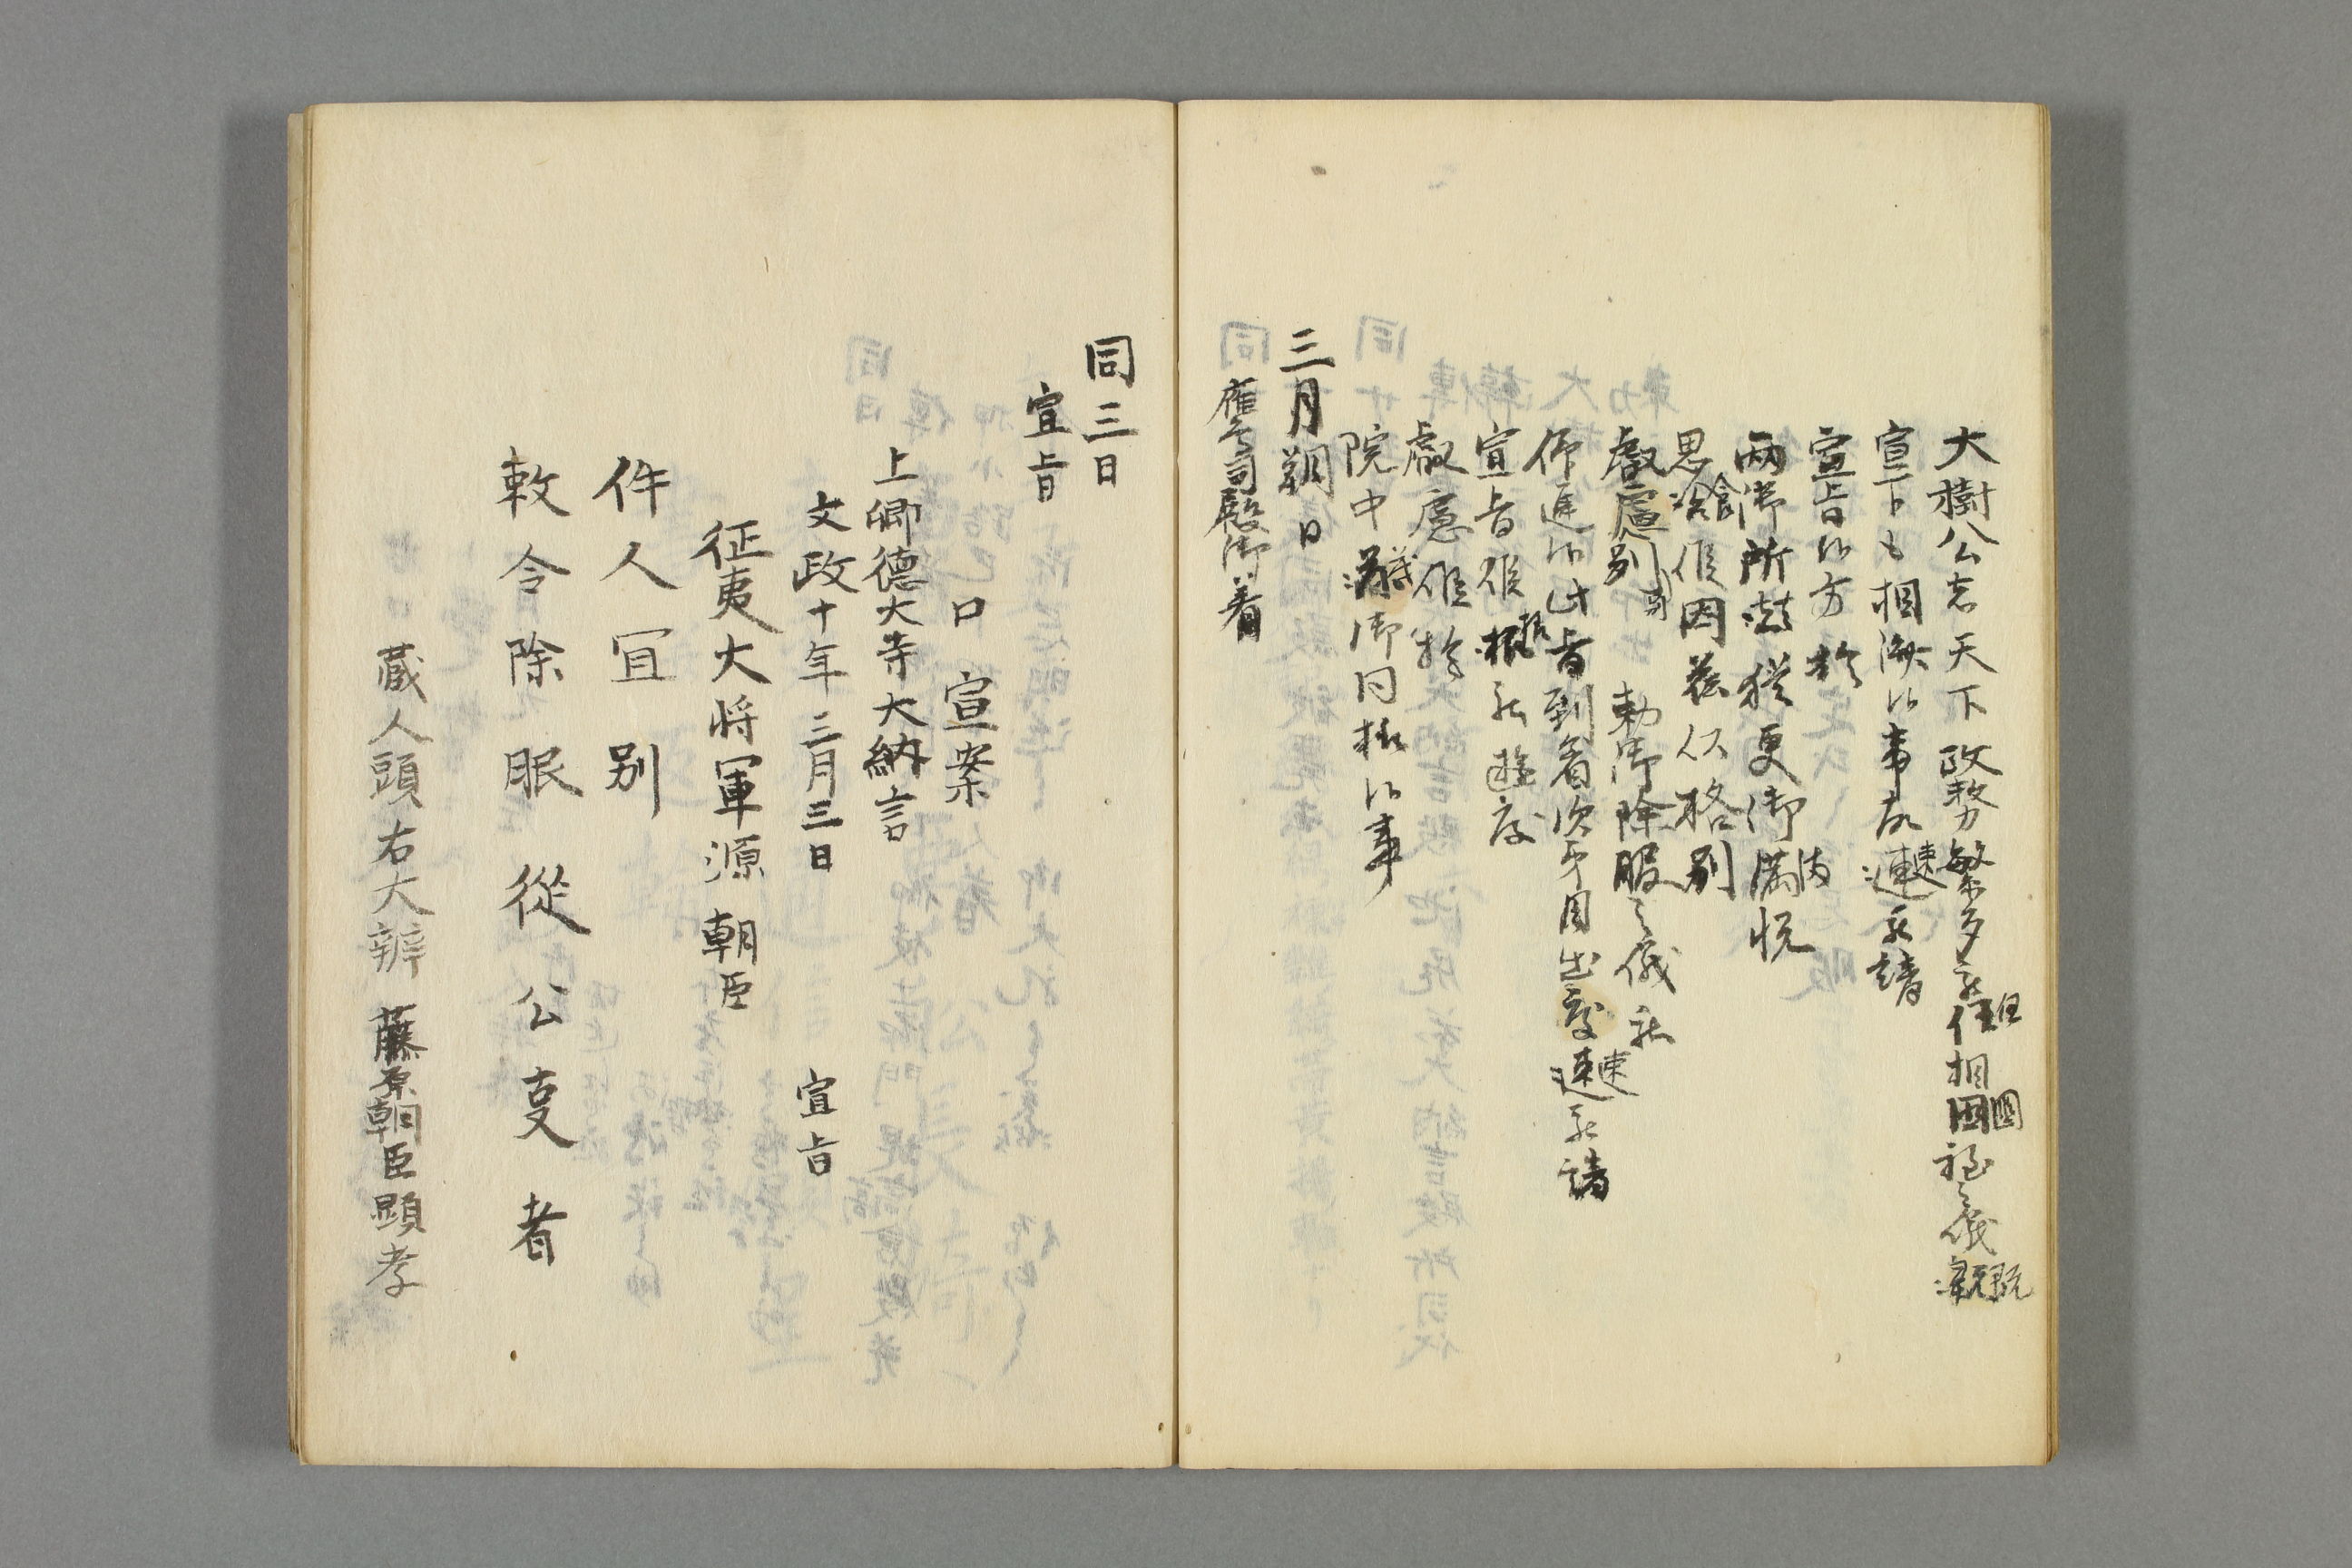 大樹公者天下政務繁多 任相国 之儀
宣下も相済候事故速 請
宣旨候方於
両御所 猶更御満悦
思食候因茲以格別
叡慮別 勅御除服之儀被
仰進候此旨到着次第目出度速 請
宣旨候様被遊度
叡慮候於
院中 御同様候事
三月朔日
鷹司殿御着
同三日
宣旨
口 宣案
上卿徳大寺大納言
文政十年三月三日 宣旨
征夷大将軍源朝臣
件人冝別
敕令除服從公㕝者
蔵人頭右大辨藤原朝臣顕孝